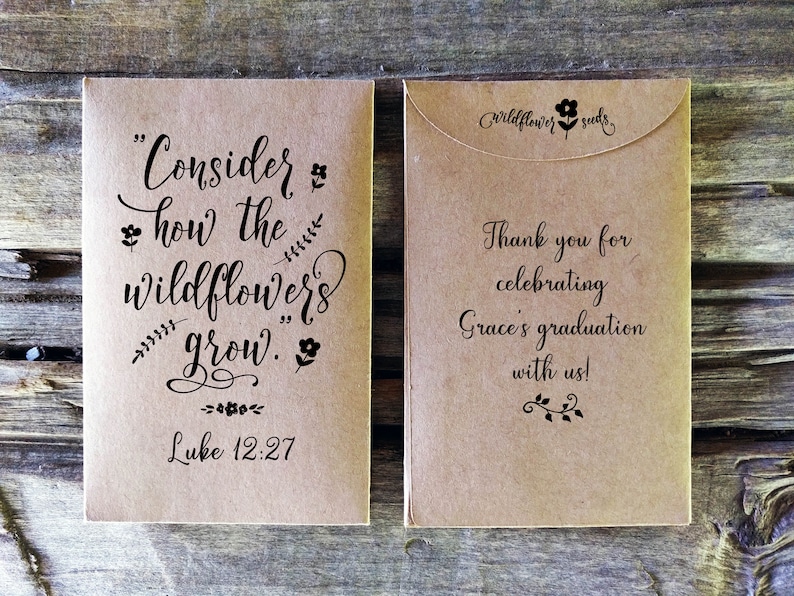 "Consider
how the
wildflowers
grow."
Luke 12:27
wildflower seeds
Thank you for
celebrating
Grace's graduation
with us!